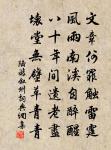 文章何罪觸雷霆
風雨南溪自醉醒
八十年間遺老盡
壞堂無壁草青青
陸游敘州